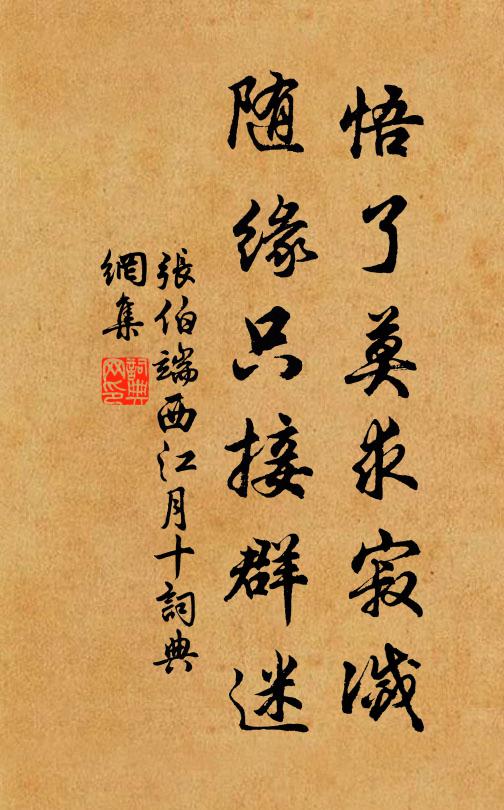 悟了莫求寂滅
随缘只接群迷
張伯端西江月十詞典
網集
詞典
网印